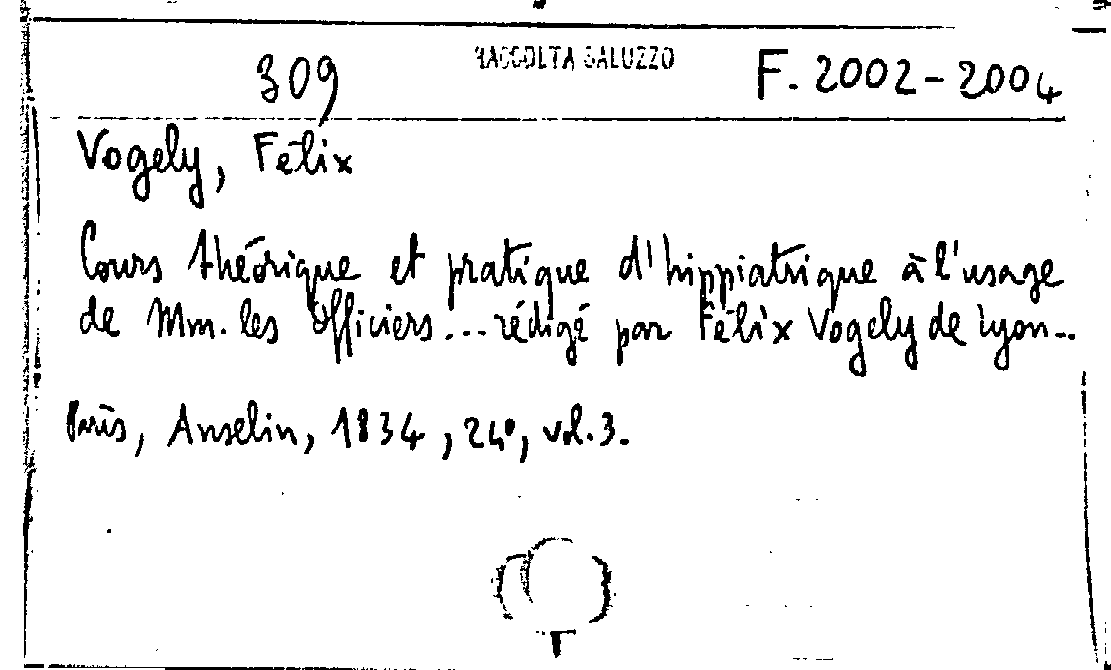 309 RACCOLTA SALUZZO F. 2002-2004
Vogely, Félix
Cours théorique et pratique d'hippiatrique à l'usage
de Mm. les Officiers... rédigé par Félix Vogely de Lyon...
Paris, Anselin, 1834, 24°, vol. 3.